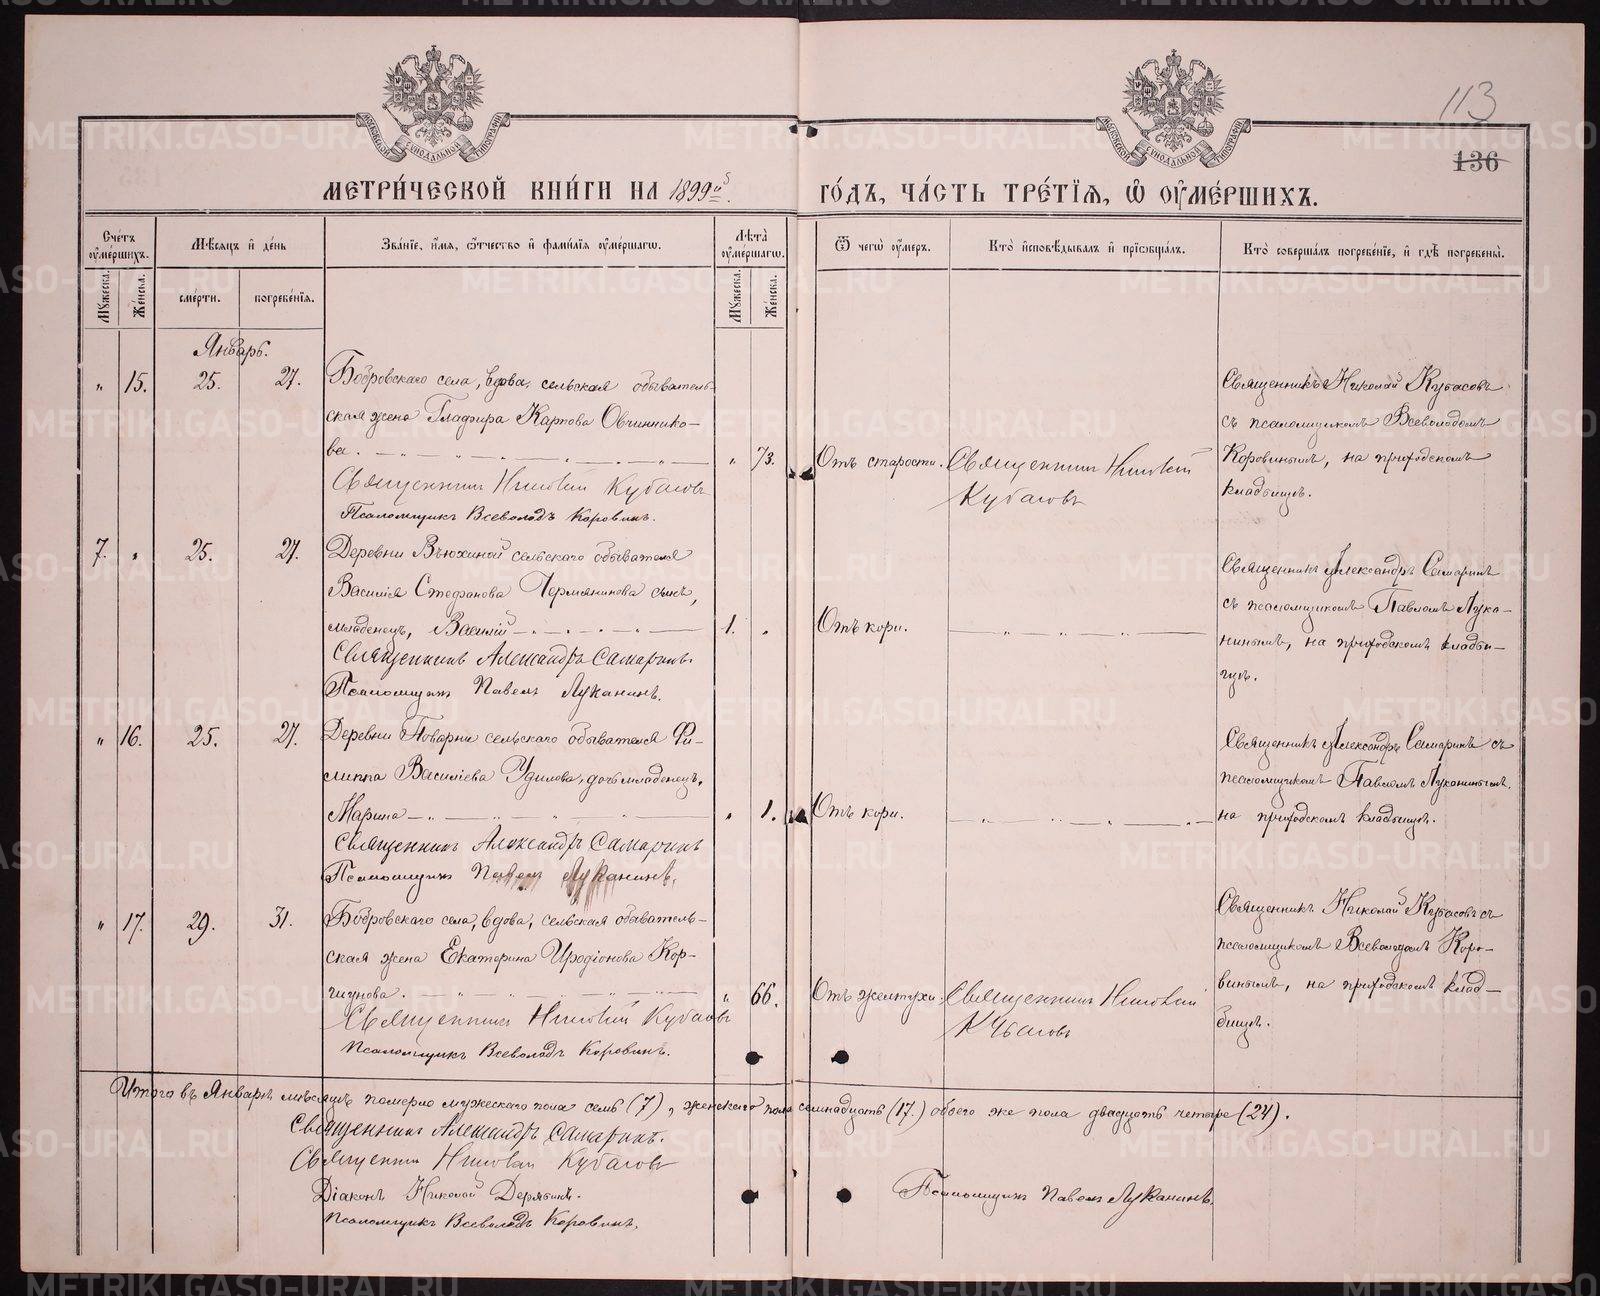 113
136
МОСКОВСКОЙ СѴНОДАЛЬНОЙ ТИПОГРАФИИ
МОСКОВСКОЙ СѴНОДАЛЬНОЙ ТИПОГРАФИИ
МЕТРИ́ЧЕСКОЙ КНИ́ГИ НА 1899й
ГО́ДЪ, ЧА́СТЬ ТРЕ́ТІЯ, Ѡ҆ ОУ҆МЕ́РШИХЪ.
Сче́тъ оу҆ме́ршихъ.
Мꙋ́жеска.
Же́нска.
Мѣ́сяцъ и҆ де́нь
сме́рти.
погребе́нія.
Зва́ніе, и҆́мя, ѻ҆́тчество и҆ фами́лія оу҆ме́ршагѡ.
Лѣ́та оу҆ме́ршагѡ.
Мꙋ́жеска.
Же́нска.
Ѿ чегѡ̀ оу҆́меръ.
Кто̀ и҆сповѣ́дывалъ и҆ прїѡбща́лъ.
Кто̀ соверша́лъ погребе́ніе, и҆ гдѣ̀ погребены̀.
Январь.
" 15. 25. 27. Бобровскаго села, вдова, сельская обыватель-
ская жена Глафира Карпова Овчиннико-
ва. " 73. Отъ старости. Священникъ Николай
Кубасовъ
Священникъ Николай Кубасовъ
Псаломщикъ Всеволодъ Коровинъ.
Священникъ Николай Кубасовъ
съ псаломщикомъ Всеволодомъ
Коровинымъ, на приходскомъ
кладбищѣ.
7. " 25. 27. Деревни Вьюхиной сельскаго обывателя
Василія Стефанова Пермянинова сынъ,
младенецъ, Василій 1. " Отъ кори.
Священникъ Александръ Самаринъ.
Псаломщикъ Павелъ Луканинъ.
Священникъ Александръ Самаринъ
съ псаломщикомъ Павломъ Лука-
нинымъ, на приходскомъ кладби-
щѣ.
" 16. 25. 27. Деревни Поварни сельскаго обывателя Фи-
липпа Василіева Удилова, дочь младенецъ,
Марина " 1. Отъ кори.
Священникъ Александръ Самаринъ
Псаломщикъ Павелъ Луканинъ.
Священникъ Александръ Самаринъ съ
псаломщикомъ Павломъ Луканинымъ,
на приходскомъ кладбищѣ.
" 17. 29. 31. Бобровскаго села, вдова, сельская обыватель-
ская жена Екатерина Иродіонова Кор-
чунова. " 66. Отъ желтухи. Священникъ Николай
Кубасовъ
Священникъ Николай Кубасовъ
Псаломщикъ Всеволодъ Коровинъ.
Священникъ Николай Кубасовъ съ
псаломщикомъ Всеволодомъ Коро-
винымъ, на приходскомъ клад-
бищѣ.
Итого въ Январѣ мѣсяцѣ померло мужескаго пола семь (7), женскаго пола семнадцать (17.) обоего же пола двадцать четыре (24).
Священникъ Александръ Самаринъ.
Священникъ Николай Кубасовъ
Діаконъ Николай Дерябинъ.
Псаломщикъ Всеволодъ Коровинъ.
Псаломщикъ Павелъ Луканинъ.
METRIKI.GASO-URAL.RU